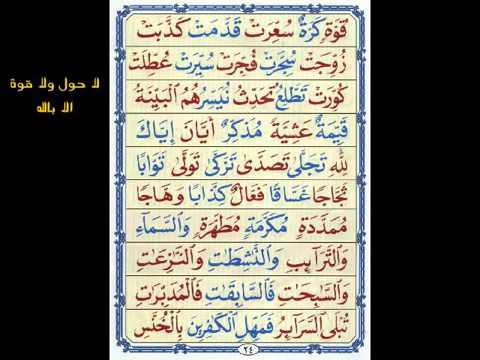 لا حول ولا قوة
الا بالله
قُوَّةٍ كَرَّةٌ سُعِّرَتْ قَدَّمَتْ كَذَّبَتْ
زُوِّجَتْ سُجِّرَتْ فُجِّرَتْ سُيِّرَتْ عُطِّلَتْ
كُوِّرَتْ تَطَّلِعُ تُحَدِّثُ نُيَسِّرُ هُمُ الْبَيِّنَةُ
قَيِّمَةٌ عَشِيَّةً مُذَكِّرٌ أَيَّانَ إِيَّاكَ
لِلّٰهِ تَجَلَّىٰ تَصَدَّىٰ تَزَكَّىٰ تَوَلَّىٰ تَوَّابًا
ثَجَّاجًا غَسَّاقًا فَعَّالٌ كِذَّابًا وَهَّاجًا
مُمَدَّدَةٍ مُكَرَّمَةٍ مُطَهَّرَةٍ وَالسَّمَآءِ
وَالتَّرَآئِبِ وَالنّٰشِطٰتِ وَالنّٰزِعٰتِ
وَالسّٰبِحٰتِ فَالسّٰبِقٰتِ فَالْمُدَبِّرٰتِ
تُبْلَى السَّرَآئِرُ فَمَهِّلِ الْكٰفِرِينَ بِالْخُنَّسِ
٢٤